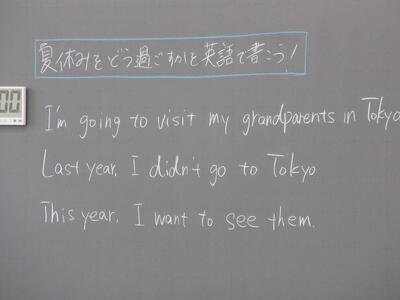 夏休みをどう過ごすかを英語で書こう!
00
I'm going to visit my grandparents in Tokyo
Last year, I didn't go to Tokyo
This year, I want to see them.